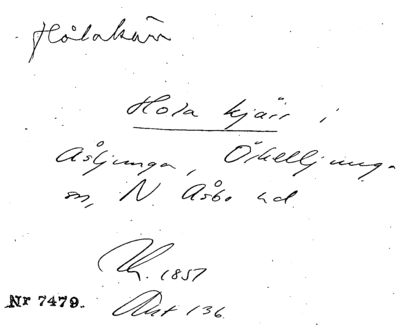 Hålakärr
Hola kjärr i
Åsljunga, Örkelljunga
sn, N. Åsbo hd
1857
Nr 7479. Akt 136.